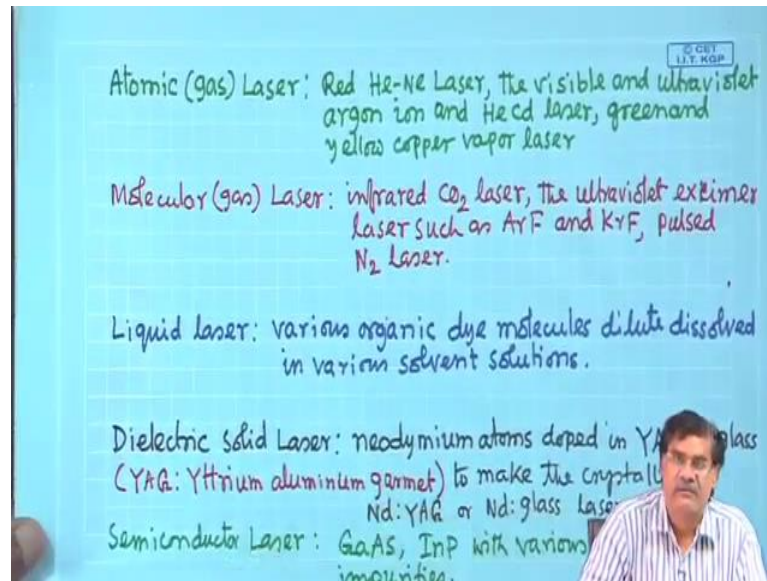 © CET
I.I.T. KGP
Atomic (gas) Laser: Red He-Ne Laser, the visible and ultraviolet
argon ion and HeCd laser, green and
yellow copper vapor laser
Molecular (gas) Laser: infrared CO₂ laser, the ultraviolet excimer
laser such as ArF and KrF, pulsed
N₂ Laser.
Liquid laser: various organic dye molecules dilute dissolved
in various solvent solutions.
Dielectric solid Laser: neodymium atoms doped in lass
(YAG: Yttrium aluminium garmet) to make the
Nd:YAG or Nd:glass Lase
Semiconductor Laser: GaAs, InP with various
impurities.